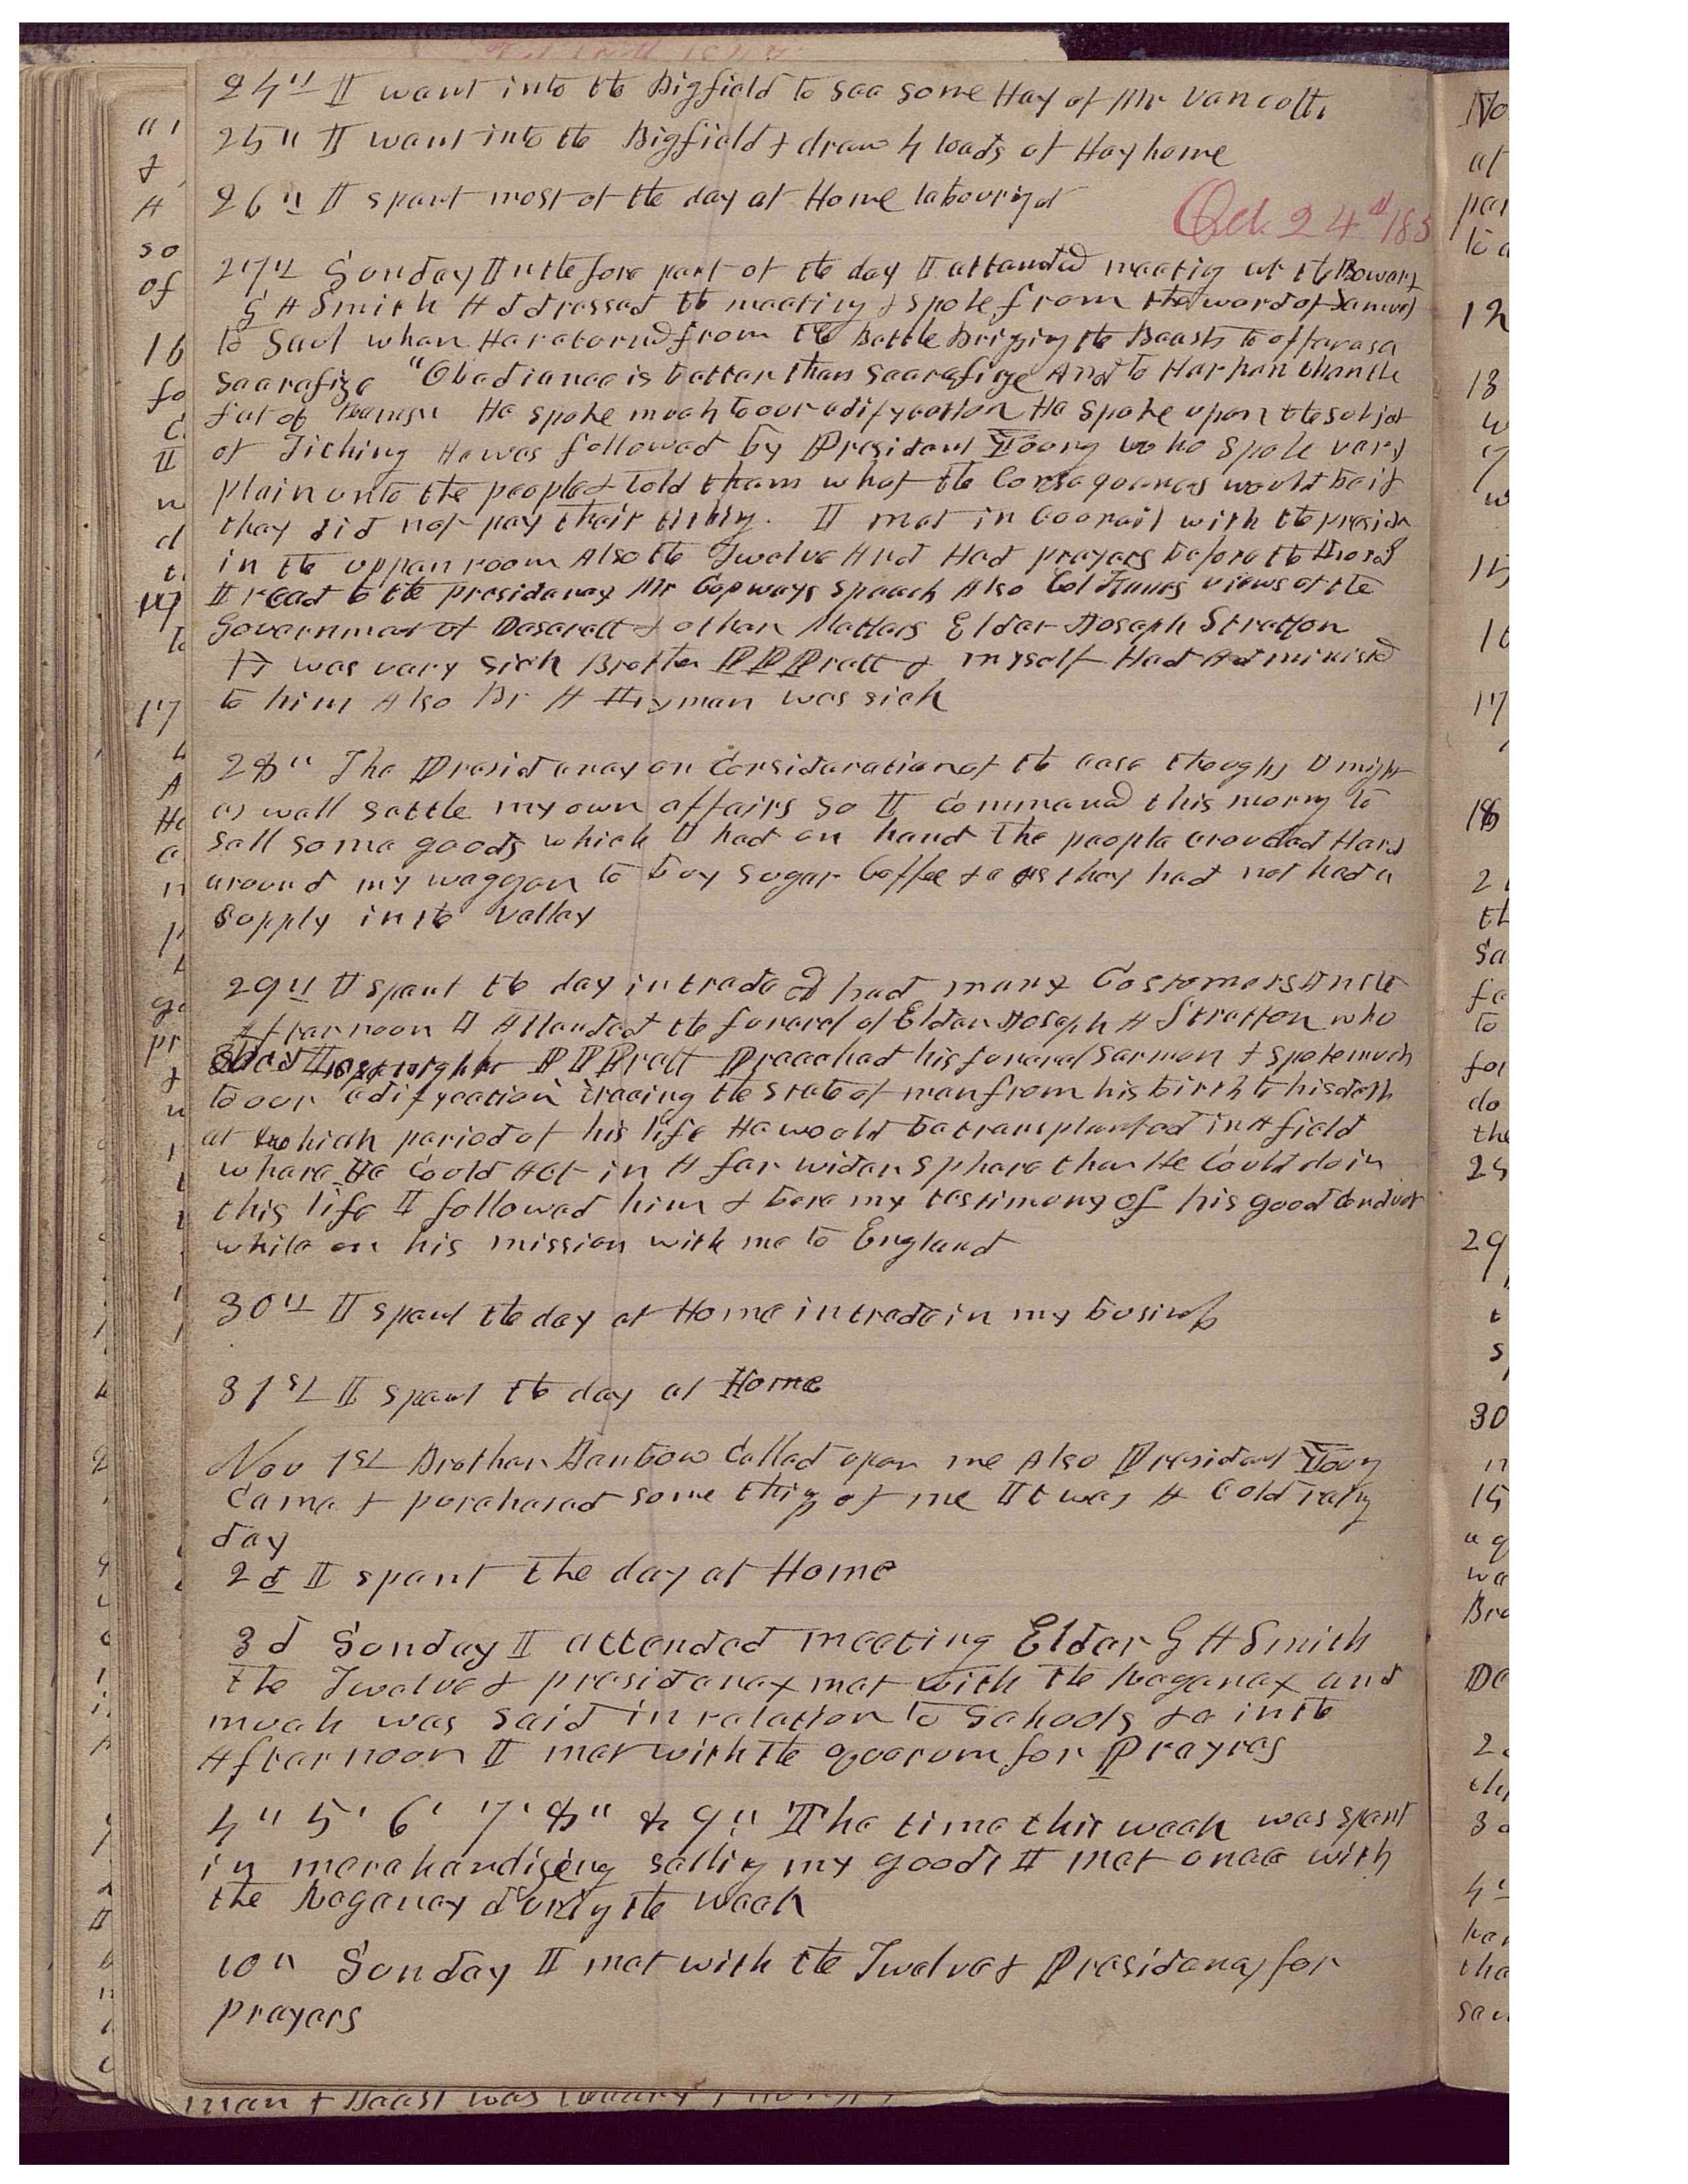 24" I went into the Bigfield to see some Hay of Mr Vancott.
25" I went into the Bigfield & drew 4 loads of Hay home
26" I spent most of the day at Home labouring
Oct. 24th 185
27th Sunday In the fore part of the day I attended meeting at the Bowery
G A Smith Addressed the meeting & spoke from the word of Samuel
to Saul when He returned from the Battle bringing the Beasts to offer as a
sacrafize "Obediance is better than sacrafize And to Harken than the
fat of Rams" He spoke much to our edifycation He spoke upon the subject
of Tithing He was followed by President Young who spoke very
plain unto the people & told them what the Consequences would be if
they did not pay their tithing. I met in Councail with the presidn
in the upper room Also the Twelve And Had prayers before the Lord
I read to the presidency Mr Copways Speech Also Col views of the
Government of Deserett & other Matters Elder Joseph Stratton
was very sick Brother P P Pratt & myself Had Administed
to him Also Br A Lyman was sick
28" The Presidency on Consideration of the case thought I might
as well settle my own affairs so I commenced this morng to
sell some goods which I had on hand The people crouded Hard
around my waggon to buy sugar Coffee &c as they had not had a
supply in the valley
29th I spent the day in trade I had many Costomers In the
Afternoon I Attended the funeral of Elder Joseph A Stratton who
died last night P P Pratt Preached his funeral Sermon & spoke much
to our edifycation traceing the state of man from his birth to his death
at which period of his life He would be transplanted in A field
where He Could Act in A far wider sphere than He Could do in
this life I followed him & bore my testimony of his good Conduct
while on his mission with me to England
30th I spent the day at Home in trade in my business
31st I spent the day at Home
Nov 1st Brother Benbow Called upon me Also President Young
Came & purchased some things of me It was A Cold rainy
day
2d I spent the day at Home
3d Sunday I attended meeting Elder G A Smith
the Twelve & presidency met with the Regency and
much was said in relation to Schools &c in the
Afternoon I met with the quorum for Prayres
4" 5' 6' 7' 8" & 9" The time this week was spent
in merchandizeing selling my goods I met once with
the Regency during the week
10" Sunday I met with the Twelve & Presidency for
prayers